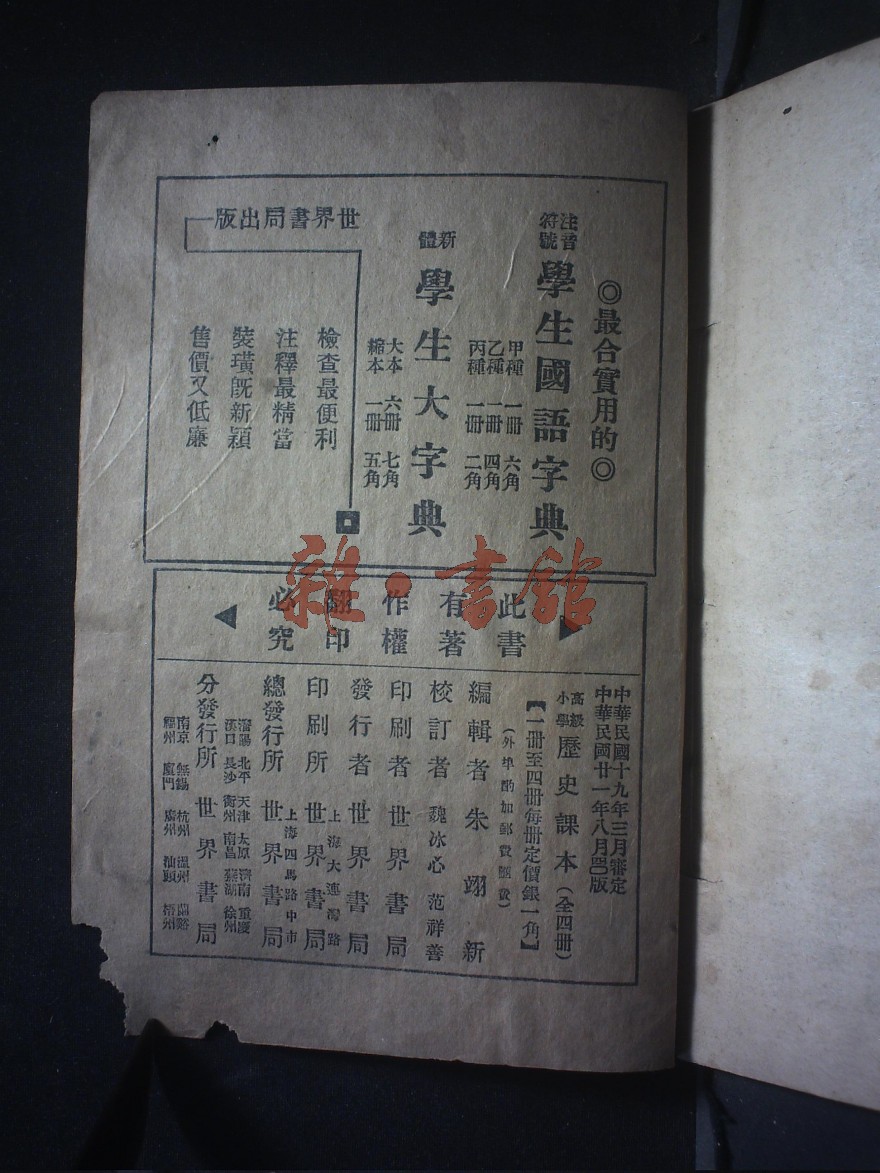 ◎最合實用的◎
注音符號
學生國語字典
甲種 一冊 六角
乙種 一冊 四角
丙種 一冊 二角
新體
學生大字典
大本 六冊 七角
縮本 一冊 五角
世界書局出版
檢查最便利
注釋最精當
裝璜旣新穎
售價又低廉
此書有著作權翻印必究
中華民國十九年三月審定
中華民國廿一年八月四〇版
高級小學 歷史課本(全四冊)
【一冊至四冊每冊定價銀一角】
(外埠酌加郵費匯費)
編輯者 朱翊新
校訂者 魏冰心 范祥善
印刷者 世界書局
發行者 世界書局
上海大連灣路
印刷所 世界書局
上海四馬路中市
總發行所 世界書局
瀋陽 北平 天津 太原 濟南 重慶
漢口 長沙 衢州 南昌 蕪湖 徐州
分發行所 世界書局
南京 無錫 杭州 溫州 蘭谿
福州 廈門 廣州 汕頭 梧州
雜·書館